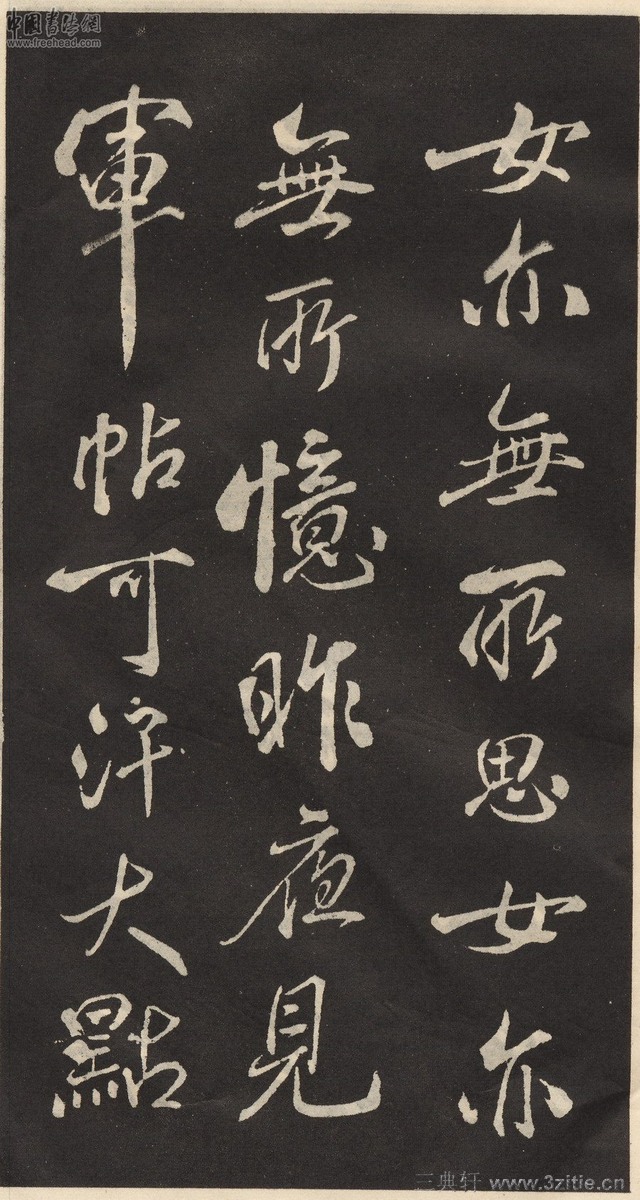 女亦無所思女亦
無所憶昨夜見
軍帖可汗大點
中國書法網
www.freehead.com
三典轩 www.3zitie.cn